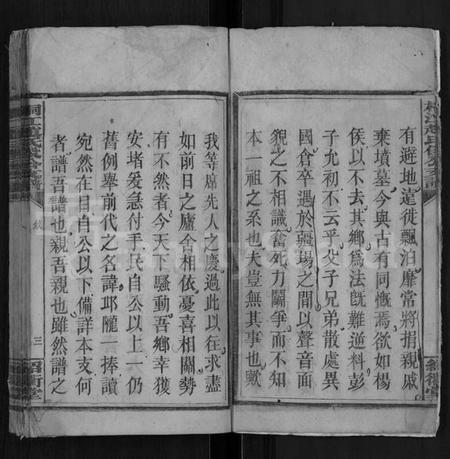 有避地遠徙飄泊靡常將指親戚
棄墳墓今與古有同慨焉欲如楊
侯以不去其鄉爲法旣難逆料彭
子允初不云乎父子兄弟散處異
國倉卒遇於疆場之間以聲音面
貌之不相識奮死力鬭爭而不知
本一祖之系也夫豈無其事也歟
我等席先人之慶過此以在求盡
如前日之廬舍相依憂喜相關勢
有不然者今天下騷動吾鄉幸獲
安堵爰急付手民自公以上一仍
舊例舉前代之名諱邱隴一捧讀
宛然在目自公以下備詳本支何
者譜吾譜也親吾親也雖然譜之
三